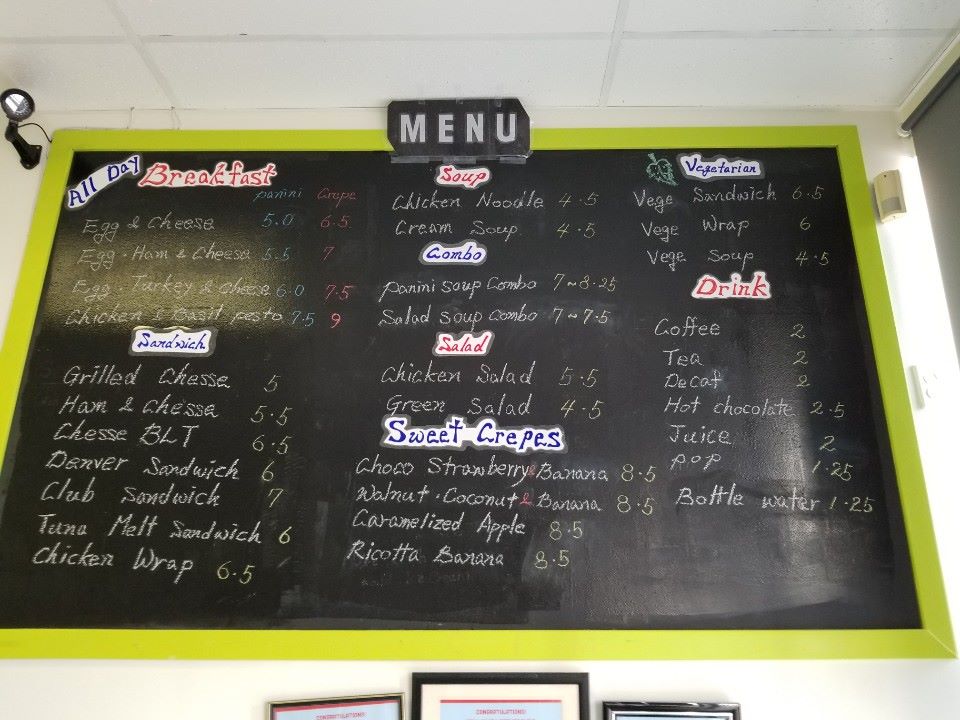 MENU
All Day Breakfast
panini Crepe
Egg & Cheese 5.0 6.5
Egg. Ham & Cheese 5.5 7
Egg Turkey & Cheese 6.0 7.5
Chicken & Basil pesto 7.5 9
Sandwich
Grilled Chesse 5
Ham & Chesse 5.5
Chesse BLT 6.5
Denver Sandwich 6
Club Sandwich 7
Tuna Melt Sandwich 6
Chicken Wrap 6.5
Soup
Chicken Noodle 4.5
Cream Soup 4.5
Combo
panini soup combo 7~8.25
Salad soup combo 7~7.5
Salad
Chicken Salad 5.5
Green Salad 4.5
Sweet Crepes
Choco Strawberry & Banana 8.5
Walnut.Coconut & Banana 8.5
Caramelized Apple 8.5
Ricotta Banana 8.5
Vegetarian
Vege Sandwich 6.5
Vege Wrap 6
Vege Soup 4.5
Drink
Coffee 2
Tea 2
Decaf 2
Hot chocolate 2.5
Juice 2
pop 1.25
Bottle water 1.25
CONGRATULATIONS!
CONGRATULATIONS!